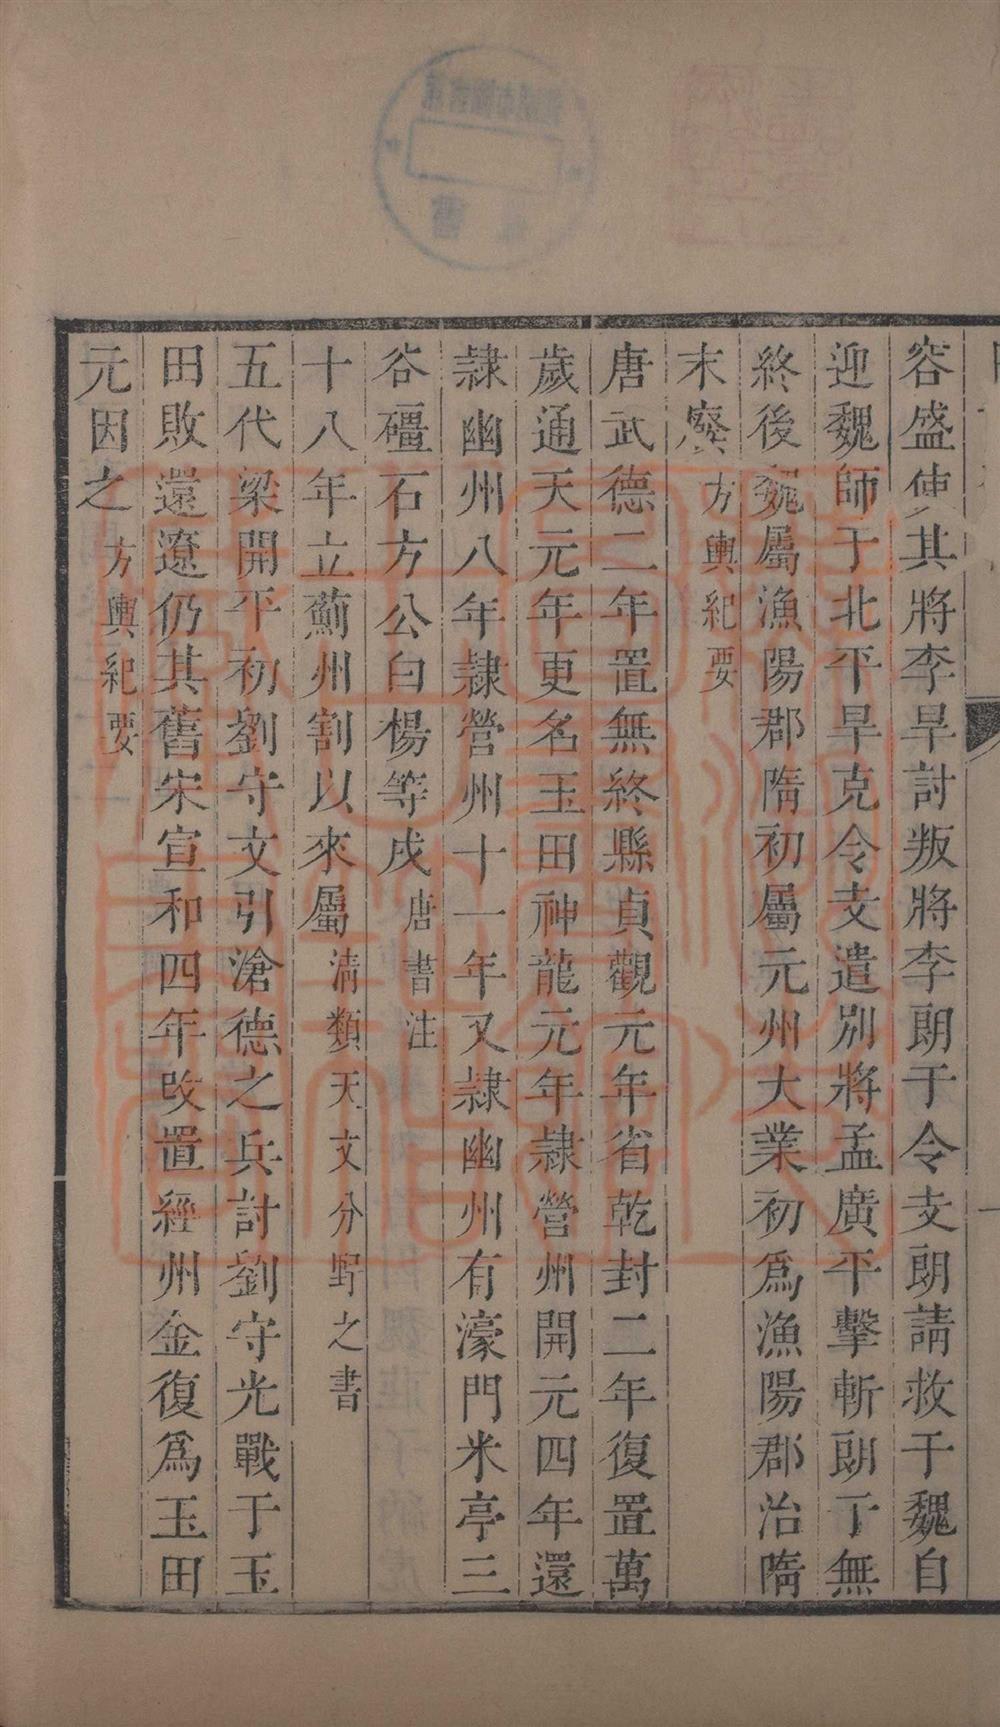 容盛使其將李旱討叛將李朗于令支朗請救于魏自
迎魏師于北平旱克令支遣別將孟廣平擊斬朗于無
終後魏屬漁陽郡隋初屬元州大業初爲漁陽郡治隋
末廢方輿紀要
唐武德二年置無終縣貞觀元年省乾封二年復置萬
歲通天元年更名玉田神龍元年隸營州開元四年還
隸幽州八年隸營州十一年又隸幽州有濠門米亭三
谷礓石方公白楊等戍唐書注
十八年立薊州割以來屬淸類天文分野之書
五代梁開平初劉守文引滄德之兵討劉守光戰于玉
田敗還遼仍其舊宋宣和四年改置經州金復爲玉田
元因之方輿紀要